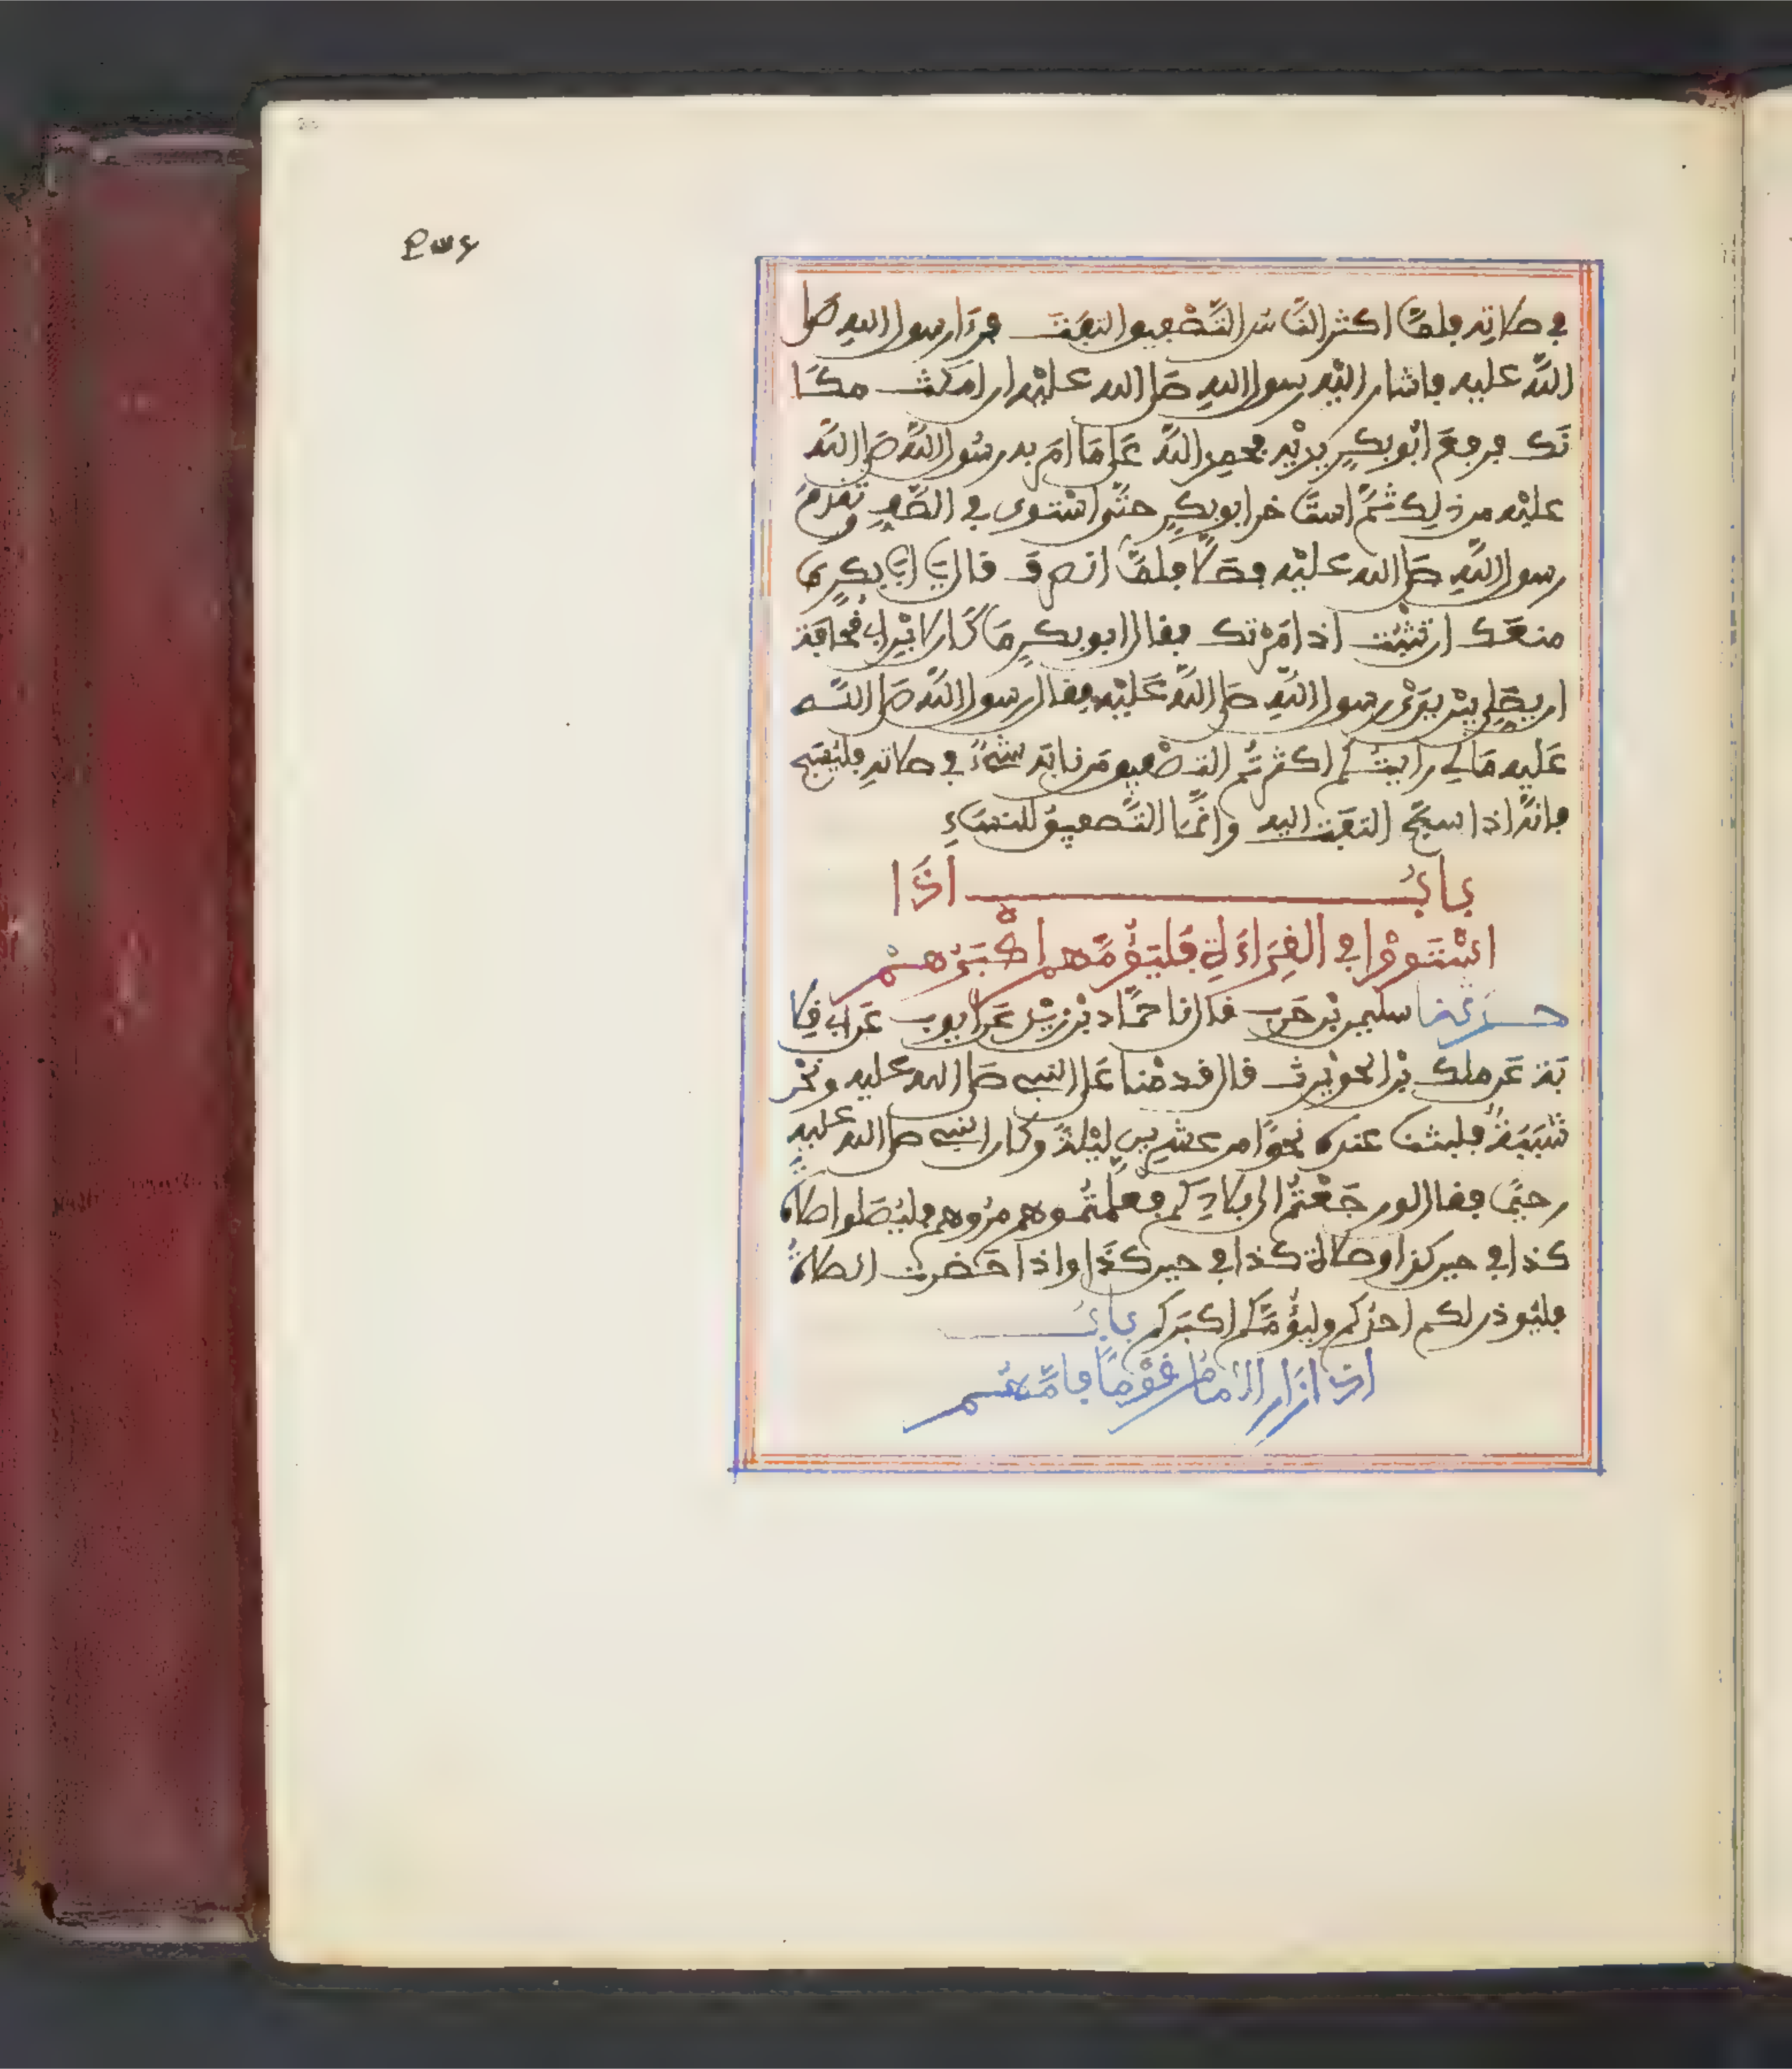 في صلاته فلما اكثر الناس التصفيق التفت فرءا رسول الله صلى
الله عليه فاشار اليه رسول الله صلى الله عليه ان امكث مكا
نك فرفع ابو بكر يديه فحمد الله على ما امر به رسول الله صلى الله
عليه من ذلك ثم استاخر ابو بكر حتى استوى في الصف وتقدم
رسول الله صلى الله عليه فصلا فلما انصرف قال يا ابا بكر ما
منعك ان تثبت اذ امرتك فقال ابو بكر ما كان لابن ابي قحافة
ان يصلي بين يدي رسول الله صلى الله عليه فقال رسول الله صلى الله
عليه ما لي رايتكم اكثرتم التصفيق من نابه شيء في صلاته فليسبح
فانه اذا سبح التفت اليه وانما التصفيق للنساء
باب اذا
استووا في القراءة فليؤمهم اكبرهم
حدثنا سليمن بن حرب قال نا حماد بن زيد عن ايوب عن ابي قلا
بة عن ملك بن الحويرث قال قدمنا على النبي صلى الله عليه ونحن
شببة فلبثنا عنده نحوا من عشرين ليلة وكان النبي صلى الله عليه
رحيما فقال لو رجعتم الى بلادكم فعلمتموهم مروهم فليصلوا صلاة
كذا في حين كذا وصلاة كذا في حين كذا واذا حضرت الصلاة
فليوذن لكم احدكم وليؤمكم اكبركم باب
اذا زار الامام قوما فامهم